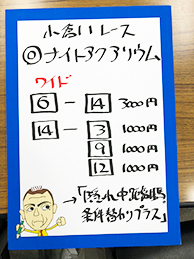 小倉11レース
◎ナイトアクアリウム
ワイド
6 ー 14 3000円
14 ー 3 1000円
9 1000円
12 1000円
→「隠れ中距離馬
条件替わりプラス」